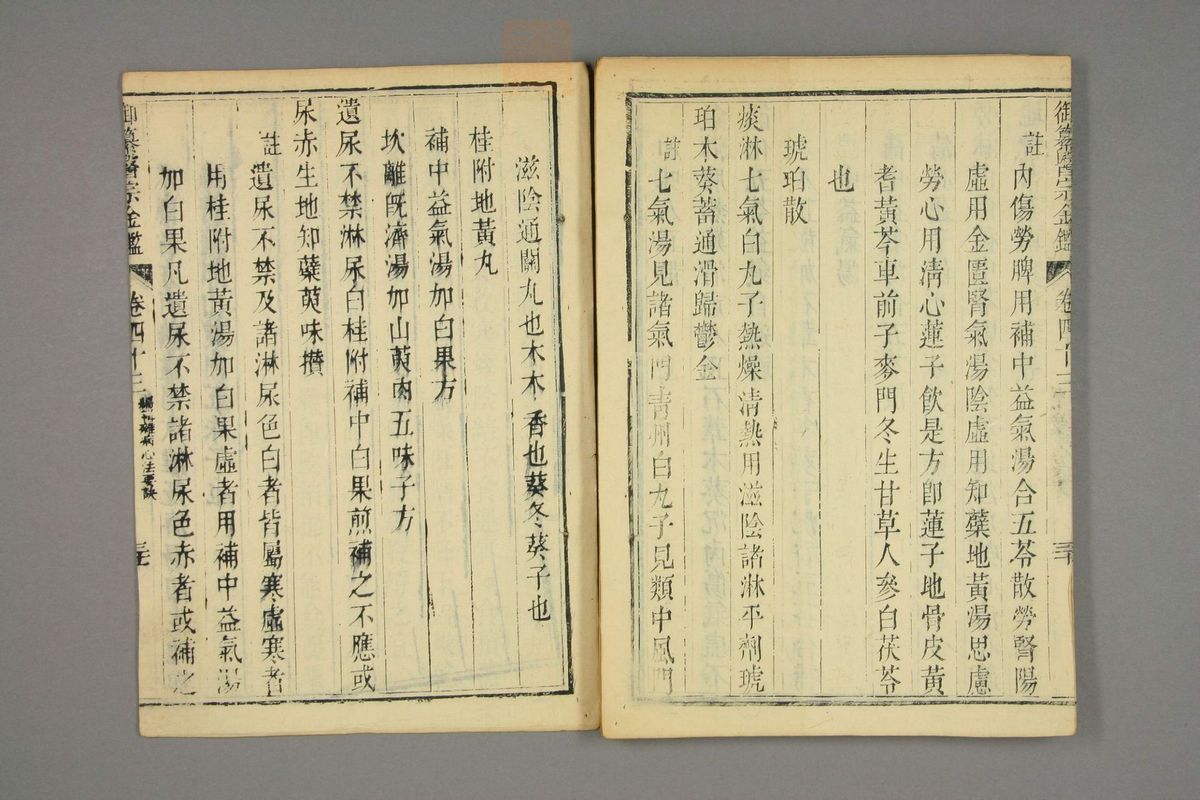 御纂醫宗金鑑 卷四十三
註 內傷勞脾用補中益氣湯合五苓散勞腎陽
虛用金匱腎氣湯陰虛用知蘗地黃湯思慮
勞心用清心蓮子飲是方卽蓮子地骨皮黃
耆黃芩車前子麥門冬生甘草人參白茯苓
也
琥珀散
痰淋七氣白丸子熱燥清熱用滋陰諸淋平劑琥
珀木葵蓄通滑歸鬱金
註 七氣湯見諸氣門青州白丸子見類中風門
滋陰通關丸也木木香也葵冬葵子也
桂附地黃丸
補中益氣湯加白果方
坎離旣濟湯加山萸肉五味子方
遺尿不禁淋尿白桂附補中白果煎補之不應或
尿赤生地知蘗萸味攢
註 遺尿不禁及諸淋尿色白者皆屬寒虛寒者
用桂附地黃湯加白果虛者用補中益氣湯
加白果凡遺尿不禁諸淋尿色赤者或補之
御纂醫宗金鑑 卷四十三 編輯雜病心法要訣